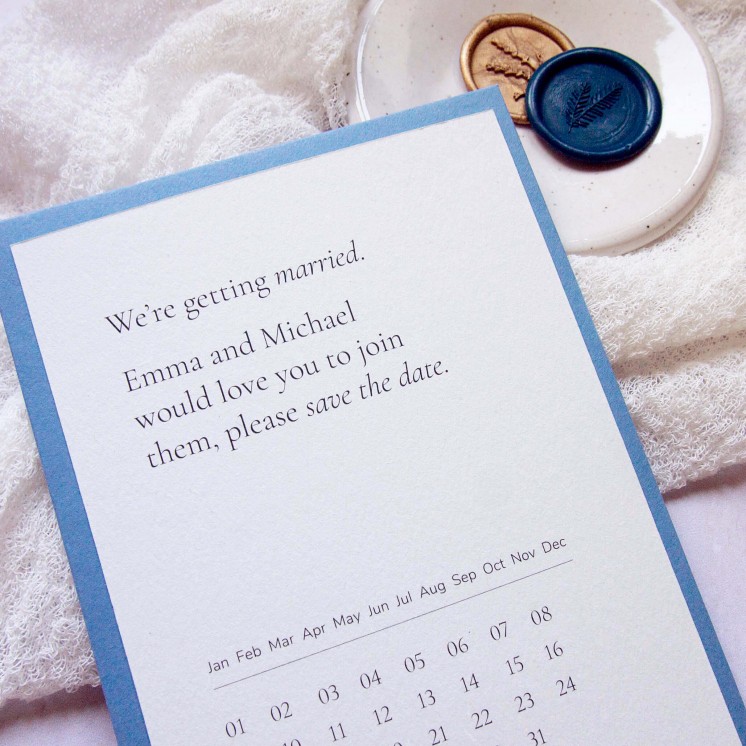 We're getting married.
Emma and Michael
would love you to join
them, please save the date.
Jan Feb Mar Apr May Jun Jul Aug Sep Oct Nov Dec
01 02 03 04 05 06 07 08
10 11 12 13 14 15 16
21 22 23 24
31